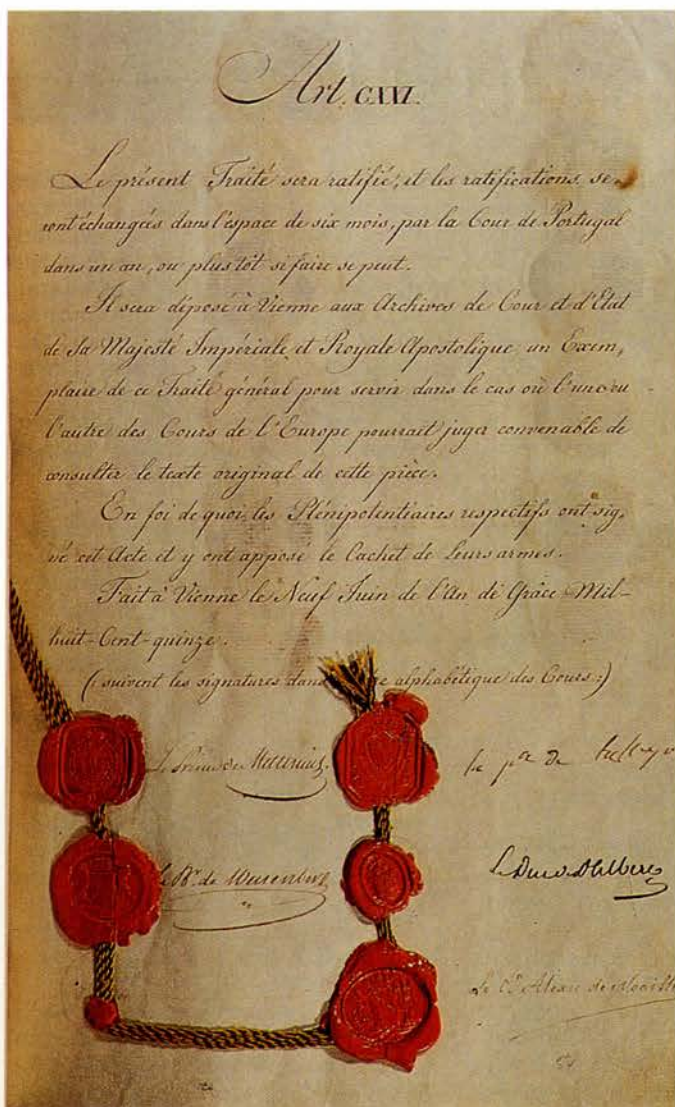 Art. CXXI.
Le présent Traité sera ratifié, et les ratifications se,
ront échangées dans l'espace de six mois, par la Cour de Portugal
dans un an, ou plus tôt si faire se peut.
Il sera déposé à Vienne aux Archives de Cour et d'Etat
de Sa Majesté Impériale et Royale Apostolique un Exem,
plaire de ce Traité général pour servir dans le cas où l'une ou
l'autre des Cours de l'Europe pourrait juger convenable de
consulter le texte original de cette pièce.
En foi de quoi les Plénipotentiaires respectifs ont sig,
né cet Acte et y ont apposé le Cachet de Leurs armes.
Fait à Vienne le Neuf Juin de l'An de Grâce Mil-
huit-Cent-quinze.
(: suivent les signatures dans alphabétique des Cours :)
Le Prince de Metternich. le pce de
Le Bn. de Wessenberg Le Duc de Dalberg
Le Cte Alexis de Noailles